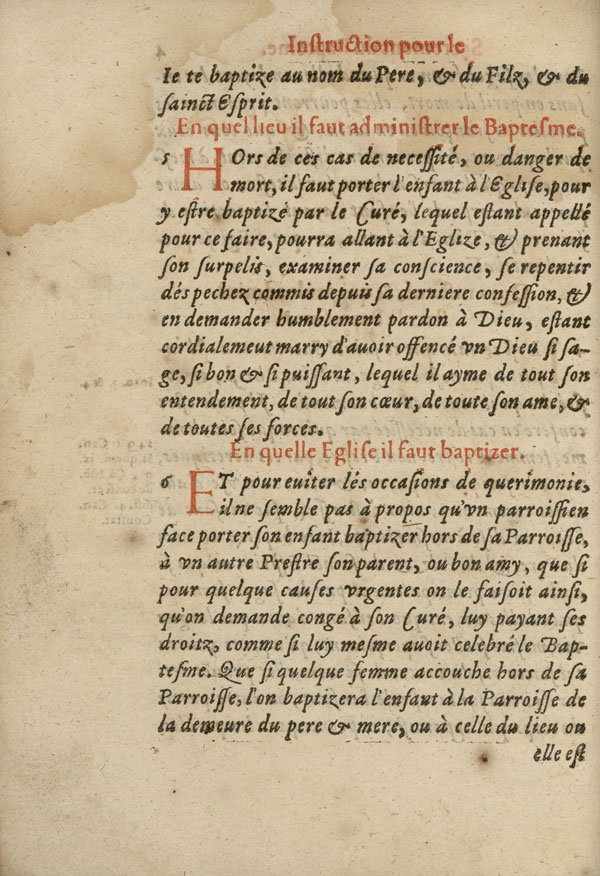 Instruction pour le
Ie te baptize au nom du Pere, & du Filz, & du
sainct Esprit.
En quel lieu il faut administrer le Baptesme.
5 HOrs de ces cas de necessité, ou danger de
mort, il faut porter l'enfant à l'Eglise, pour
y estre baptizé par le Curé, lequel estant appellé
pour ce faire, pourra allant à l'Eglize, & prenant
son surpelis, examiner sa conscience, se repentir
dés pechez commis depuis sa derniere confession, &
en demander humblement pardon à Dieu, estant
cordialemeut marry d'auoir offencé vn Dieu si sa-
ge, si bon & si puissant, lequel il ayme de tout son
entendement, de tout son cœur, de toute son ame, &
de toutes ses forces.
En quelle Eglise il faut baptizer.
6 ET pour euiter lés occasions de querimonie,
il ne semble pas à propos qu'vn parroissien
face porter son enfant baptizer hors de sa Parroisse,
à vn autre Prestre son parent, ou bon amy, que si
pour quelque causes vrgentes on le faisoit ainsi,
qu'on demande congé à son Curé, luy payant ses
droitz, comme si luy mesme auoit celebré le Bap-
tesme. Que si quelque femme accouche hors de sa
Parroisse, l'on baptizera l'enfant à la Parroisse de
la demeure du pere & mere, ou à celle du lieu ou
elle est